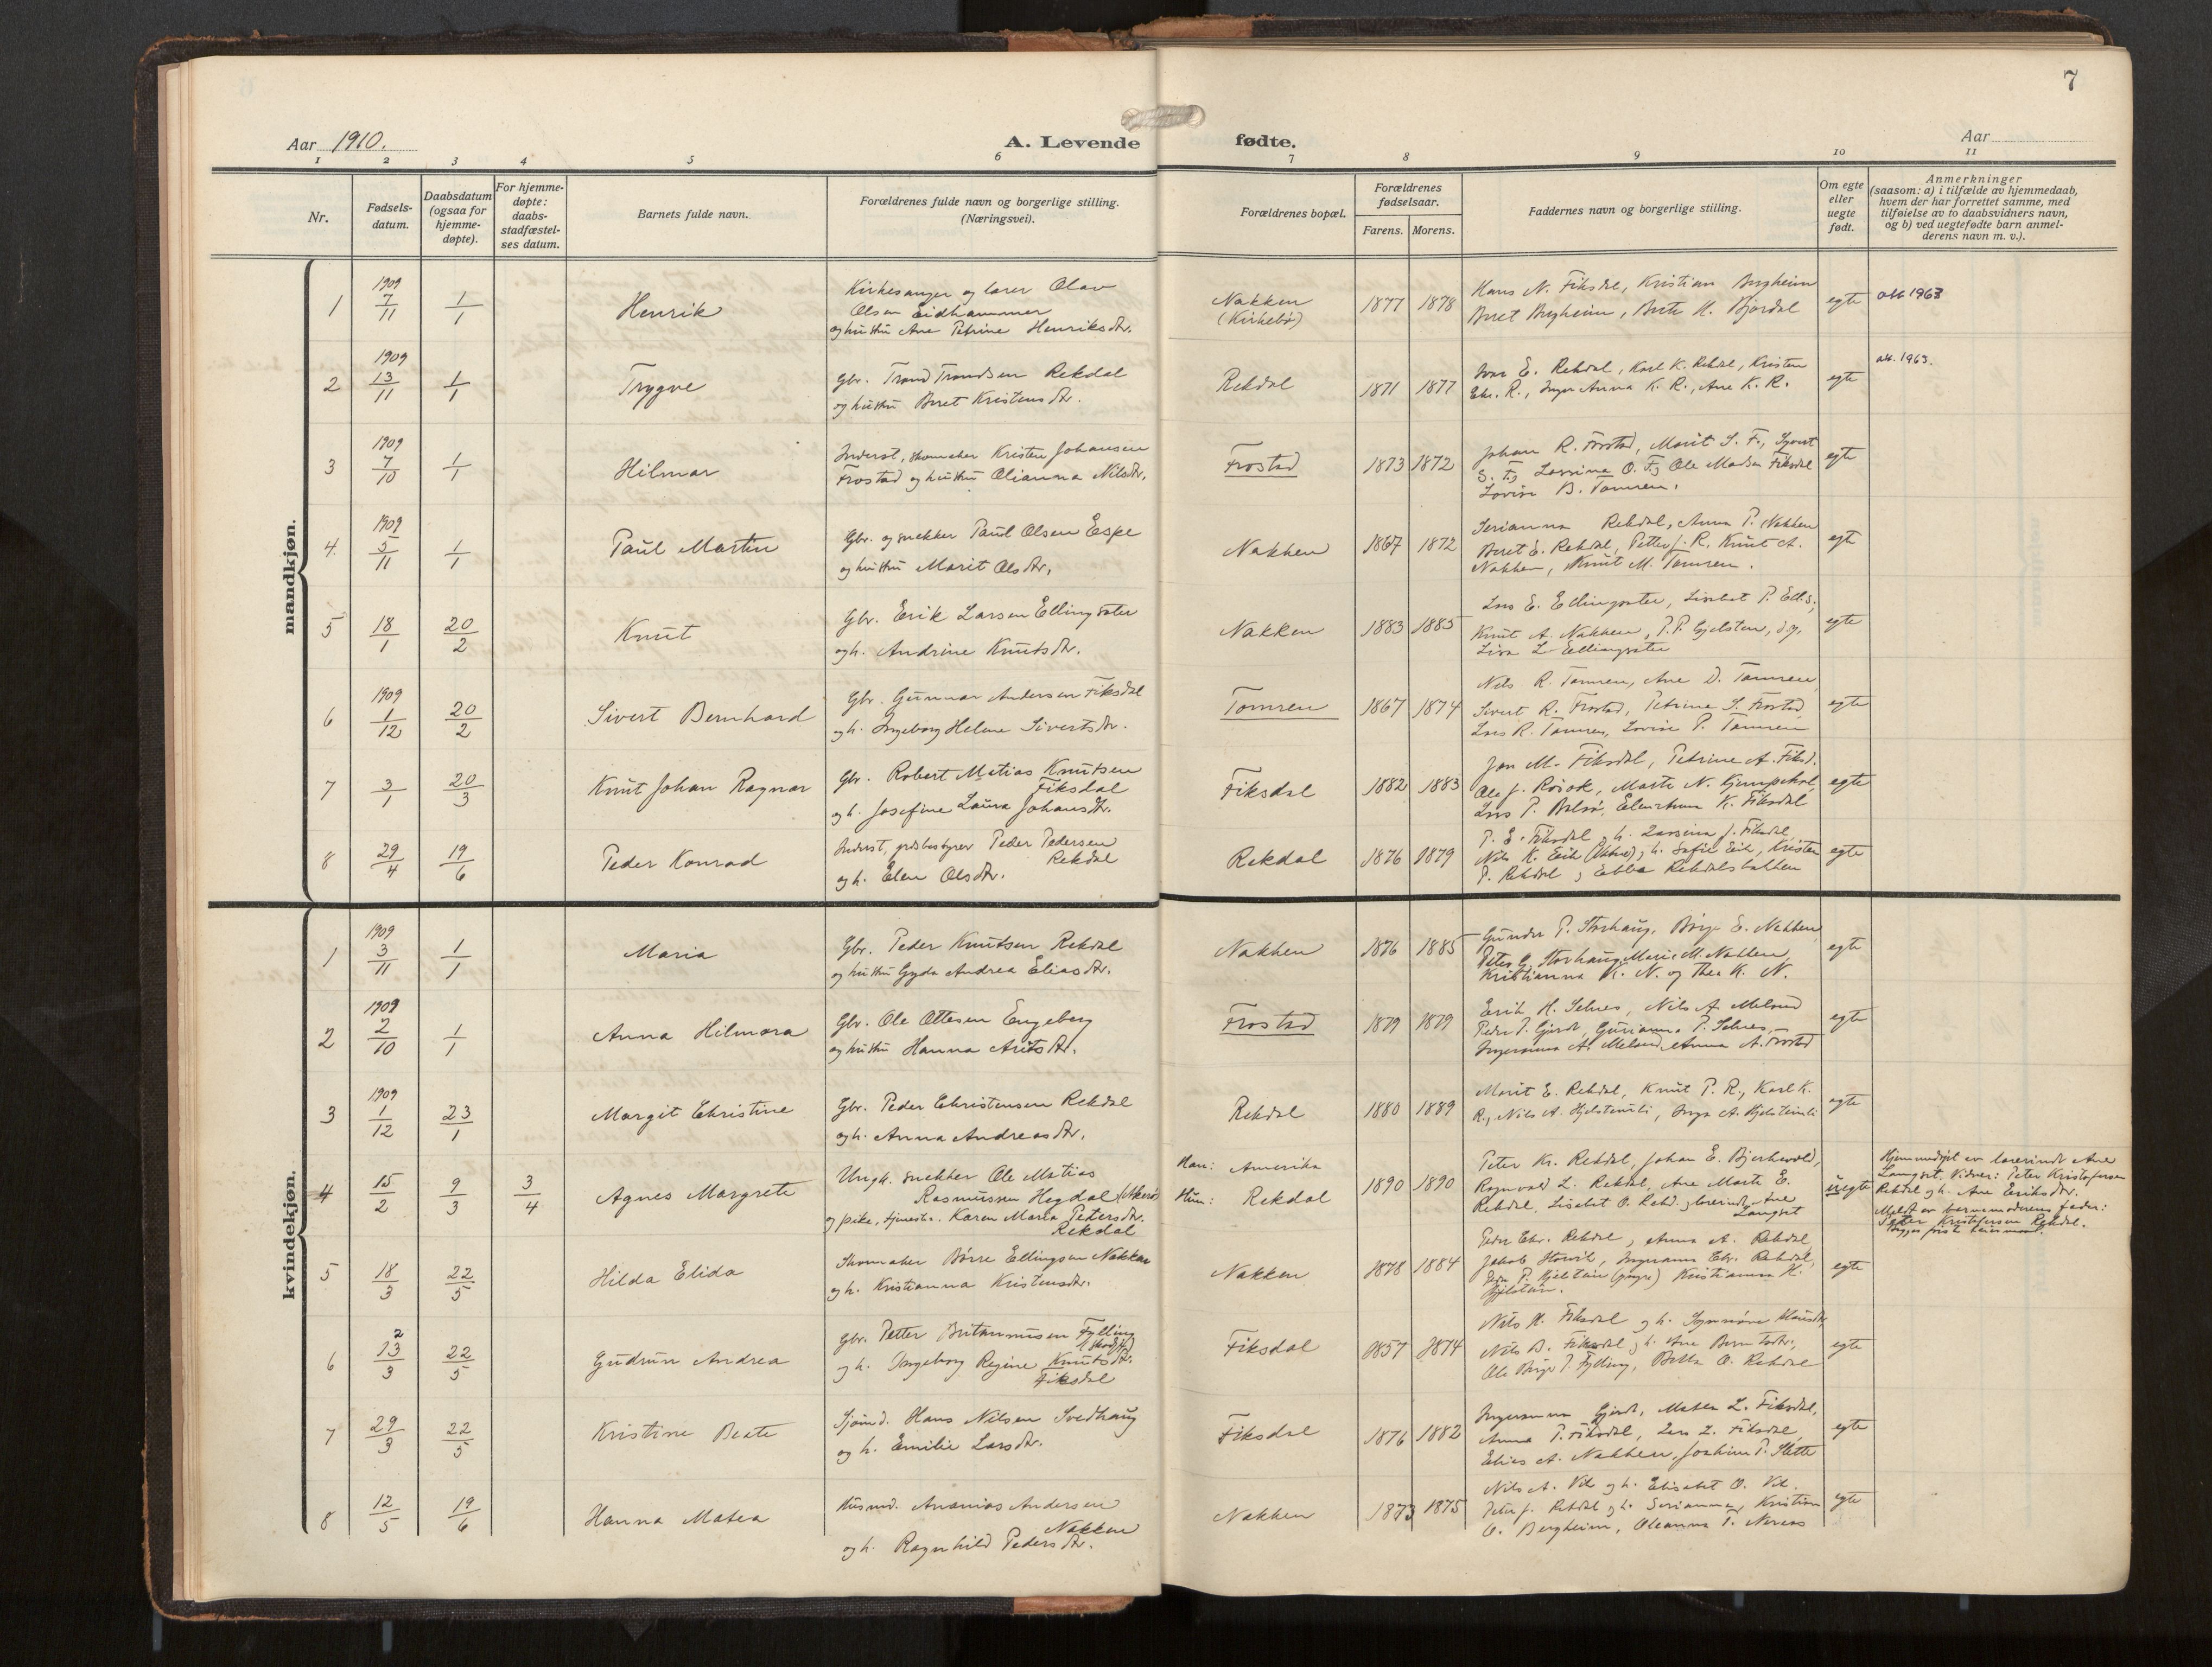 7
Aar 1910.
A. Levende
fødte.
Aar
1 2 3 4 5 6 7 8 9 10 11
Nr.
Fødsels-
datum.
Daabsdatum
(ogsaa for
hjemme-
døpte).
For hjemme-
døpte:
daabs-
stadfæstel-
ses datum.
Barnets fulde navn.
Forældrenes fulde navn og borgerlige stilling.
(Næringsvei).
Forældrenes bopæl.
Forældrenes
fødselsaar.
Farens. Morens.
Faddernes navn og borgerlige stilling.
Om egte
eller
uegte
født.
Anmerkninger
(saasom: a) i tilfælde av hjemmedaab,
hvem der har forrettet samme, med
tilføielse av to daabsvidners navn,
og b) ved uegtefødte barn anmel-
derens navn m. v.).
mandkjøn.
1
1909
7/11
1/1
Henrik
Kirkesanger og lærer Olav
Olsen Eidhammer
og hustru Ane Petrine Henriksdtr.
Nakken
(Kirkebø)
1877 1878
Hans N. Fiksdal, Kristian Bergheim
Beret Bergheim, Brite K. Bjordal
egte
att 1963
2
1909
13/11
1/1
Trygve
Gbr. Trond Trondsen Rekdal
og hustru Beret Kristensdtr.
Rekdal
1871 1877
Ivar E. Rekdal, Karl K. Rekdal, Kristen
Chr. R., Inger Anna K. R., Ane K. R.
egte
att. 1963.
3
1909
7/10
1/1
Hilmar
Inderst, skomaker Kristen Johansen
Frostad og hustru Olianna Nilsdtr.
Frostad
1873 1872
Johan R. Frostad, Marit S. F., Syvert
S. F., Lassina O. F., Ole Madsen Fiksdal
Lovise B. Tomren.
egte
4.
1909
5/11
1/1
Paul Martin
Gbr. og snekker Paul Olsen Espe
og hustru Marit Olsdtr.
Nakken
1867 1872
Serianna Rekdal, Anna P. Nakken
Beret E. Rekdal, Petter J. R, Knut A.
Nakken, Knut M. Tomren.
egte
5
18/1
20/2
Knut
Gbr. Erik Larsen Ellingsæter
og h. Andrine Knutsdtr.
Nakken
1883 1885
Lars E. Ellingsæter, Lisebet P. Ell.s,
Knut A. Nakken, P. P. Gjelsten,
Lisa L Ellingsæter
egte
6
1909
1/12
20/2
Sivert Bernhard
Gbr. Gunnar Andersen Fiksdal
og h. Ingeborg Helene Sivertsdtr.
Tomren
1867 1874
Nils R. Tomren, Ane D. Tomren
Sivert R. Frostad, Petrine S. Frostad
Lars R. Tomren, Lovise P. Tomren
egte
7
3/1
20/3
Knut Johan Ragnar
Gbr. Robert Matias Knutsen
Fiksdal
og h. Josefine Laura Johansdtr.
Fiksdal
1882 1883
Jon M. Fiksdal, Petrine A. Fiksd.
Ole J. Røsok, Marte N.
Lars P. Elen Anna K. Fiksdal
egte
8
29/4
19/6
Peder Konrad
Inderst, Peder Pedersen
Rekdal
og h. Elen Olsdtr.
Rekdal
1876 1879
P. E. Fiksdal, h. Lassina J. Fiksdal,
Nils K. Eik h. Sofie Eik, Kristen
P. Rekdal, Ebba Rekdalsbakken
egte
kvindekjøn.
1
1909
3/11
1/1
Maria
Gbr. Peder Knutsen Rekdal
og hustru Gyda Andrea Eliasdtr.
Nakken
1876 1885
Gunder P. Storhaug, Børge E. Nakken
Peter G. Storhaug, Marie M. Nakken,
Kristianna K. N. og Thea K. N.
egte
2
1909
2/10
1/1
Anna Hilmara
Gbr. Ole Ottesen Engeberg
og hustru Hanna Aritsdtr.
Frostad
1879 1879
Erik H. Selnes, Nils A. Meland
Peder P. Gjerde, Gurianna P. Selnes,
Ingeranna A. Meland, Anna A. Frostad
egte
3
1909
1/12
23/1
Margit Christine
Gbr. Peder Christensen Rekdal
og h. Anna Andreasdtr.
Rekdal
1880 1889
Marit E. Rekdal, Knut P. R., Karl K.
R., Nils A. Hjelstenli, Inga A. Hjelstenli
egte
4
15/2
9/3
3/4
Agnes Margrete
Ungk. snekker Ole Matias
Rasmussen Hegdal (Akerø)
og pike, tjenest. Karen Marta Petersdtr.
Rekdal
Han: Amerika
Hun: Rekdal
1890 1890
Peter Kr. Rekdal, Johan E. Bjerkevold,
Ragnvald L. Rekdal, Ane Marte E.
Rekdal, Lisebet O. Rekd. lærerinde Ane
Langset
uegte
Hjemmedøpt av lærerinde Ane
Langset. Vidner: Peter Kristofersen
Rekdal og h. Ane Eriksdtr.
Meldt av barnemoderens fader:
Peter Kristofersen Rekdal.
Begges første leiermaal.
5
18/3
22/5
Hilda Elida
Skomaker Børre Ellingsen Nakken
og h. Kristianna Kristensdtr.
Nakken
1878 1884
Peder Chr. Rekdal, Anna A. Rekdal,
Jakob Storvik, Ingeranna Chr. Rekdal,
Peder P. Hjelstein (yngre) Kristianna K.
Hjelstein.
egte
6
12/3
22/5
Gudrun Andrea
Gbr. Petter Britanusen Fylling
(Skodje)
og h. Ingeborg Regine Knutsdtr.
Fiksdal
Fiksdal
1857 1874
Nils K. Fiksdal og h. Synnøve Klausdtr
Nils B. Fiksdal og h. Ane Berntsdtr,
Ole Børge P. Fylling, Berta O. Rekdal
egte
7
29/3
22/5
Kristine Beate
Sjømd. Hans Nilsen Svedhaug
og h. Emilie Larsdtr.
Fiksdal
1876 1882
Ingeranna Gjerde, Matea L. Fiksdal,
Anna P. Fiksdal, Lars L. Fiksdal,
Elias A. Nakken, Joakim P. Slette
egte
8
12/5
19/6
Hanna Matea
Husmd. Ananias Andersen
Nakken
og h. Ragnhild Pedersdtr.
Nakken
1873 1875
Nils A. Vik og h. Elisabet O. Vik.
Peter J. Rekdal og h. Serianna, Kristian
O. Bergheim, Oleanna T. Nerem
egte